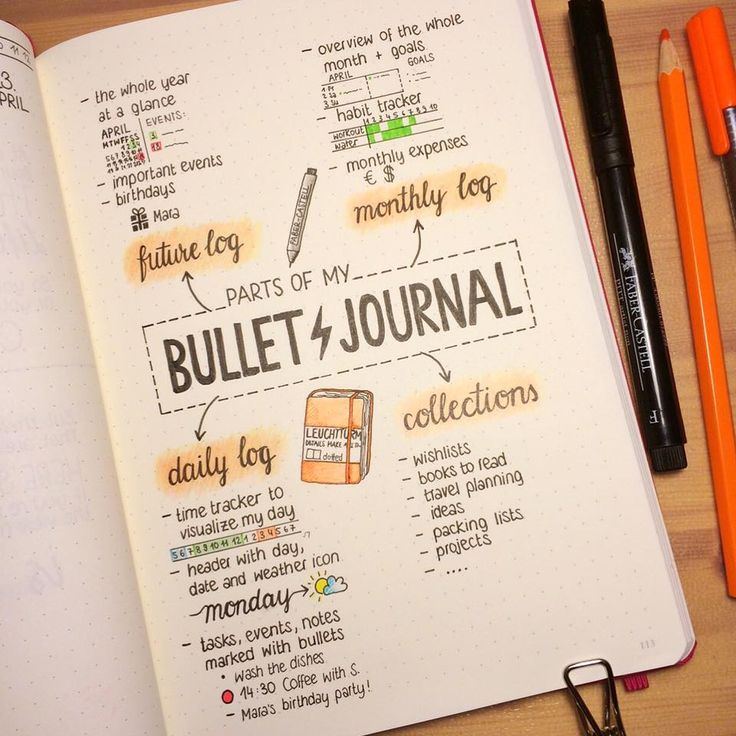 3.
APRIL
- the whole year
at a glance
APRIL
MTWTFSS
EVENTS:
- important events
- birthdays
Mara
future log
- overview of the whole
month + goals
APRIL
GOALS
1 Fr
2 Sa
3 Su
- habit tracker
1 2 3 4 5 6 7 8 9 10
workout
water
- monthly expenses
€ $
monthly log
FABER-CASTELL
PARTS OF MY
BULLET JOURNAL
daily log
- time tracker to
visualize my day
5 6 7 8 9 10 11 12 1 2 3 4 5 6 7
- header with day,
date and weather icon
monday
- tasks, events, notes
marked with bullets
• wash the dishes
14:30 Coffee with S.
- Mara's birthday party!
LEUCHTTURM
DETAILS MAKE
dotted
collections
- wishlists
- books to read
- travel planning
- ideas
- packing lists
- projects
- ....
113
FABER-CASTELL
F